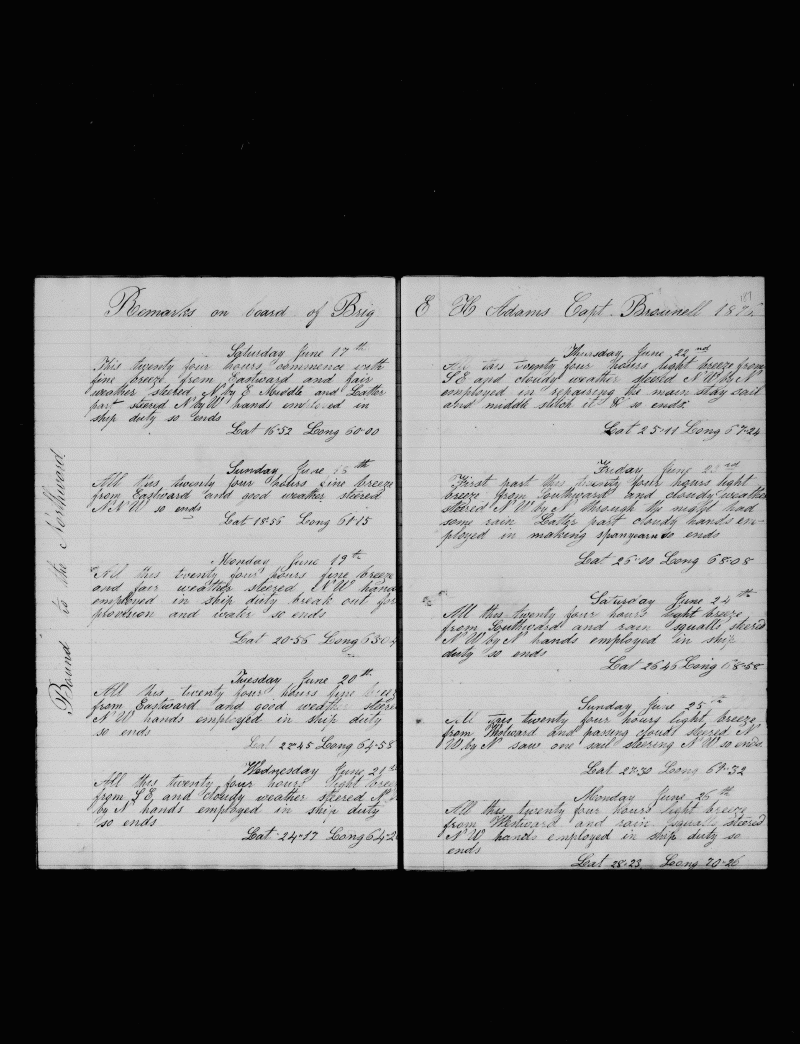 Remarks on board of Brig
Saturday June 17th
This twenty four hours commence with
fine breeze from Eastward and fair
weather steered N by E Middle and Latter
part steered N by W hands employed in
ship duty so ends
Lat 16-52 Long 60-00
Sunday June 18th
All this twenty four hours fine breeze
from Eastward and good weather steered
N N W so ends
Lat 18-56 Long 61-15
Monday June 19th
All this twenty four hours fine breeze
and fair weather steered N W hands
employed in ship duty break out for
provision and water so ends
Lat 20-56 Long
Tuesday June 20th
All this twenty four hours fine breeze
from Eastward and good weather steered
N W hands employed in ship duty
so ends
Lat 22-45 Long 64-58
Wednesday June 21st
All this twenty four hours light breeze
from S E and cloudy weather steered N
by N hands employed in ship duty
so ends
Lat 24-17 Long
Bound to the Northward
E H Adams Capt. Brownell 1876
Thursday June 22nd
All this twenty four hours light breeze from
S E and cloudy weather steered N W by N
employed in repairing the main stay sail
and middle stitch it so ends
Lat 25-11 Long 67-24
Friday June 23rd
First part this twenty four hours light
breeze from Southward and cloudy weather
steered N W by N through the night had
some rain Latter part cloudy hands em-
ployed in making spanyearn so ends
Lat 25-00 Long 68-08
Saturday June 24th
All this twenty four hours light breeze
from Southward and rain squalls steered
N W by N hands employed in ship
duty so ends
Lat 26 46 Long 68-58
Sunday June 25th
All this twenty four hours light breeze
from Westward and passing clouds steered N
W by N saw one sail steering N W so ends
Lat 27-30 Long 69-52
Monday June 26th
All this twenty four hours light breeze
from Westward and rain squalls steered
N W hands employed in ship duty so
ends
Lat 28-23 Long 70-26